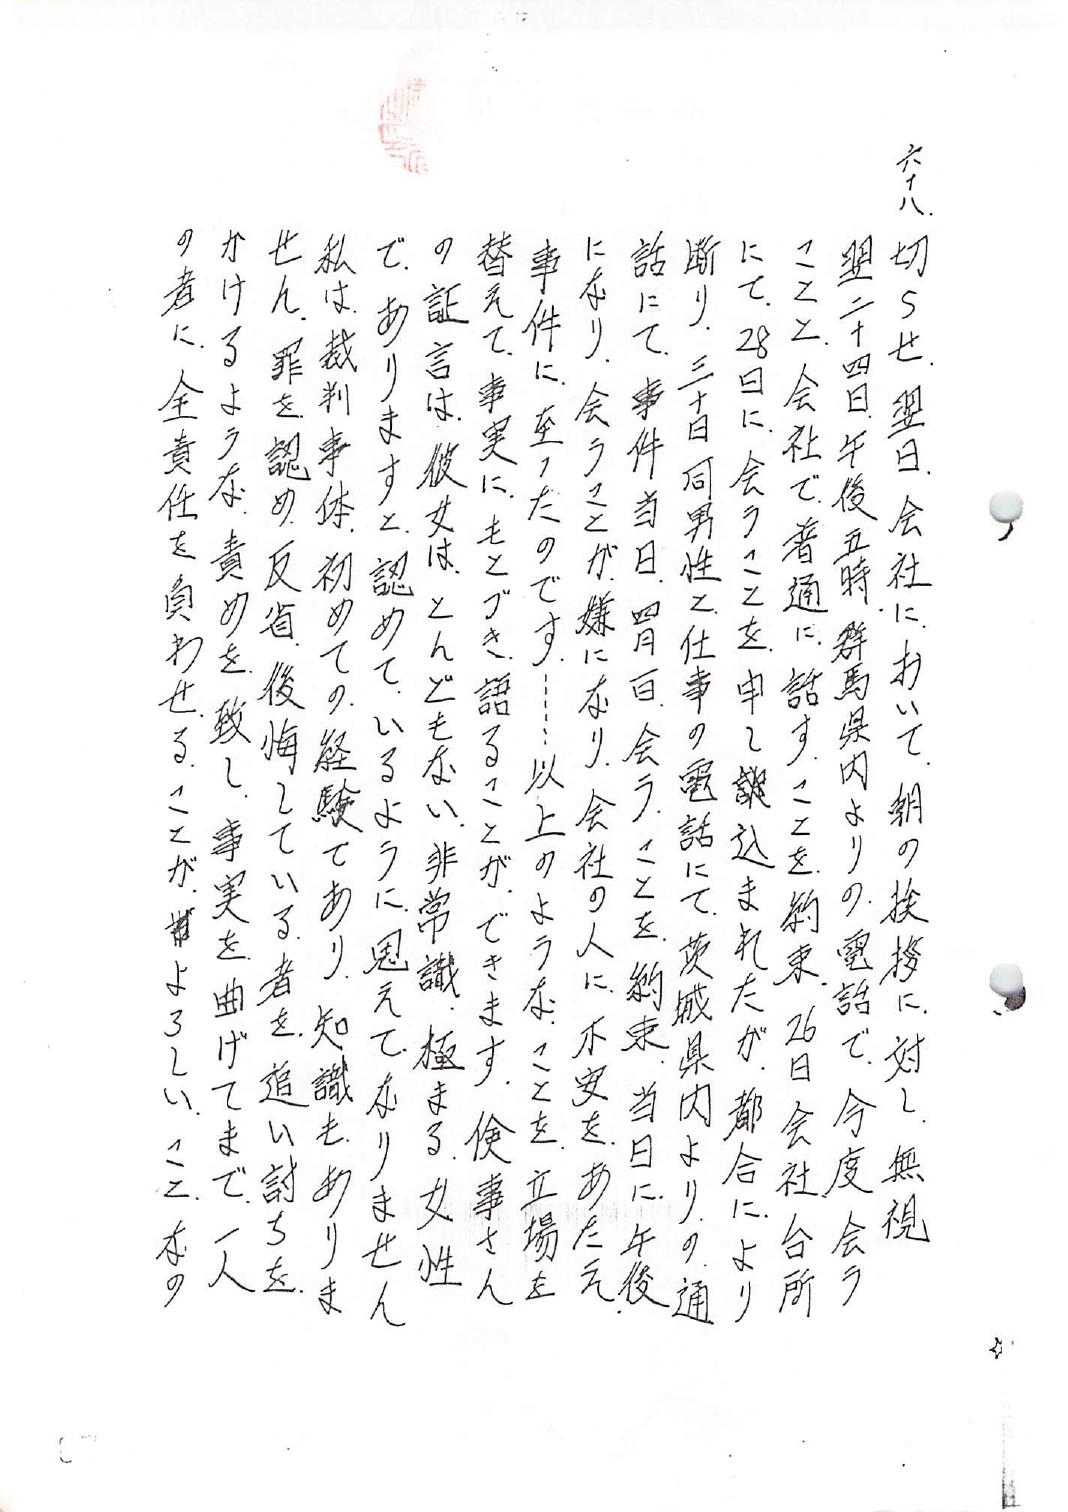 六十八.
切らせ、翌日、会社において、朝の挨拶に対し、無視
翌二十四日、午後五時、群馬県内よりの、電話で、今度会う
ことと、会社で、普通に、話す、ことを、約束、26日会社台所
にて、28日に、会うことを、申し込まれたが、都合により
断り、三十日同男性と、仕事の電話にて、茨城県内よりの、通
話にて、事件当日、四月一日、会う、ことを、約束、当日に、午後
になり、会うことが、嫌になり、会社の人に、不安を、あたえ、
事件に、至ったのです、……以上のような、ことを、立場を
替えて、事実に、もとづき、語ることが、できます、倹事さん
の証言は、彼女は、とんどもない、非常識、極まる、女性
で、ありますと、認めて、いるように、思えて、なりません
私は、裁判事体、初めての、経験であり、知識も、ありま
せん、罪を、認め、反省、後悔している、者を、追い討ちを、
かけるような、責めを、致し、事実を、曲げてまで、一人
の者に、全責任を、負わせる、ことが、よろしい、こと、なの